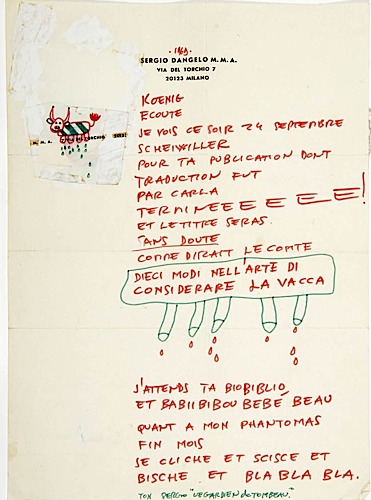 1969
SERGIO DANGELO M. M. A.
VIA DEL TORCHIO 7
20123 MILANO
KOENIG
ECOUTE
JE VOIS CE SOIR 24 SEPTEMBRE
SCHEIWILLER
POUR TA PUBLICATION DONT
TRADUCTION FUT
PAR CARLA
TERMINEEE E E E E!
ET LE TITRE SERAS
SANS DOUTE
COMME DIRAIT LE COMTE
DIECI MODI NELL'ARTE DI
CONSIDERARE LA VACCA
J'ATTENDS TA BIOBIBLIO
ET BABIIBIBOU BEBÉ BEAU
QUANT A MON PHANTOMAS
FIN MOIS
JE CLICHE ET SCISCE ET
BISCHE ET BLA BLA BLA.
TON SERGIO